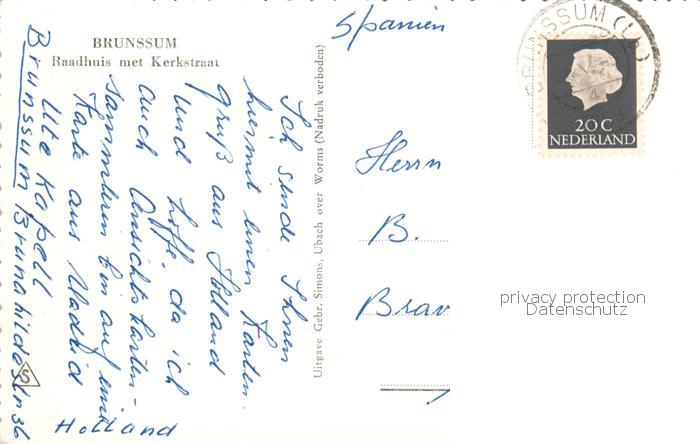 BRUNSSUM
Raadhuis met Kerkstraat
Ich sende Ihnen
hiermit einen Karten-
gruß aus Holland
und hoffe, da ich
auch Ansichtskarten-
Sammlerin bin auf eine
Karte aus Madrid
Ute Kapell
Brunssum Brunahildastr 36
Holland
Uitgave Gebr. Simons, Ubach over Worms (Nadruk verboden)
Spanien
BRUNSSUM (L.)
20 C
NEDERLAND
Herrn
B.
Brav
privacy protection
Datenschutz
S